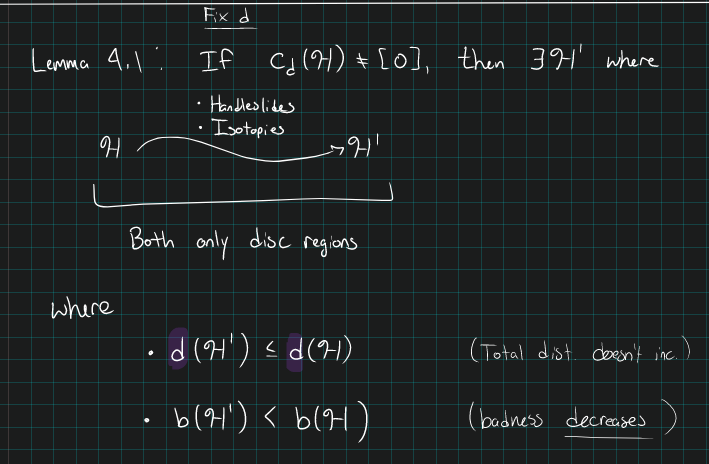 Fix d
Lemma 4.1: If C_d(ℋ) ≠ [0], then ∃ℋ' where
• Handleslides
• Isotopies
ℋ → ℋ'
Both only disc regions
where
• d(ℋ') ≤ d(ℋ) (Total dist. doesn't inc.)
• b(ℋ') < b(ℋ) (badness decreases)